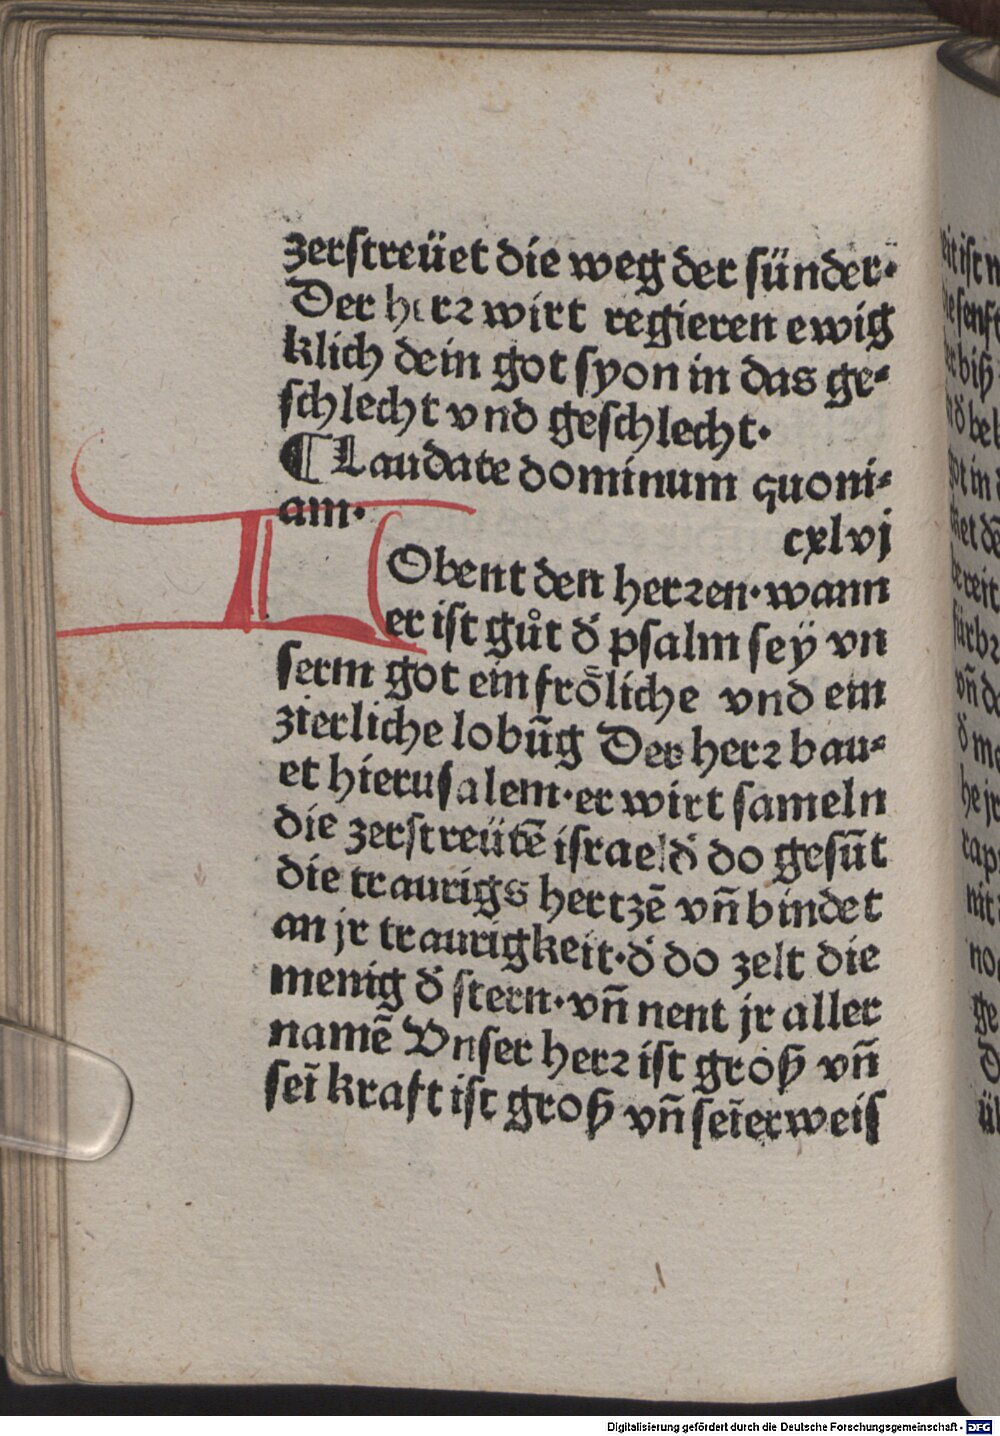 zerstreüet die weg der sünder·
Der herꝛ wirt regieren ewig
klich dein got syon in das ge⸗
schlecht vnd geschlecht·
¶ Laudate dominum quoni⸗
am·
cxlvj
LObent den herꝛen·wann
er ist gůt d̕ psalm sey vn
serm got ein froͤliche vnd ein
zierliche lobūg Der herꝛ bau⸗
et hierusalem·er wirt sameln
die zerstreütē israel d̕ do gesūt
die traurigs hertzē vn̄ bindet
an jr traurigkeit·d̕ do zelt die
menig d̕ stern·vn̄ nent jr aller
namē Vnser herꝛ ist groß vn̄
seī kraft ist groß vn̄ seīer weis
eit ist
biß
d̕ bel
got in
bereit
fürbꝛ
vn̄ de
d̕ me
he jr
nit
ge
Digitalisierung gefördert durch die Deutsche Forschungsgemeinschaft - DFG